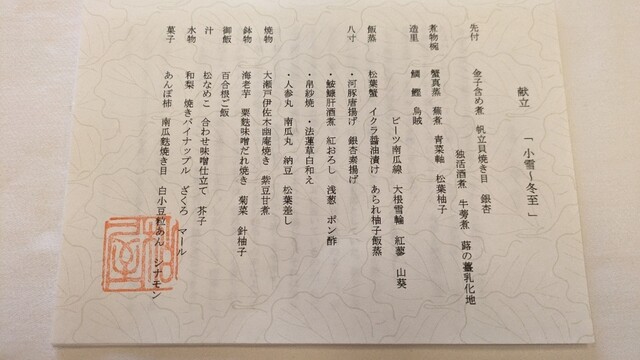 献立 「 小雪～冬至 」
先付 金子含め煮 帆立貝焼き目 銀杏
独活酒煮 牛蒡煮 蕗の薹乳化地
煮物椀 蟹真蒸 蕪煮 青菜軸 松葉柚子
造里 鯛 鰹 烏賊
ビーツ南瓜線 大根雪輪 紅蓼 山葵
飯蒸 松葉蟹 イクラ醤油漬け あられ柚子飯蒸
八寸 ・河豚唐揚げ 銀杏素揚げ
・鮟鱇肝酒煮 紅おろし 浅葱 ポン酢
・帛紗焼 ・法蓮草白和え
・人参丸 南瓜丸 納豆 松葉差し
焼物 大瀬戸伊佐木幽庵焼き 紫豆甘煮
鉢物 海老芋 粟麩味噌だれ焼き 菊菜 針柚子
御飯 百合根ご飯
汁 松なめこ 合わせ味噌仕立て 芥子
水物 和梨 焼きパイナップル ざくろ マール
菓子 あんぽ柿 南瓜麩焼き目 白小豆粒あん シナモン